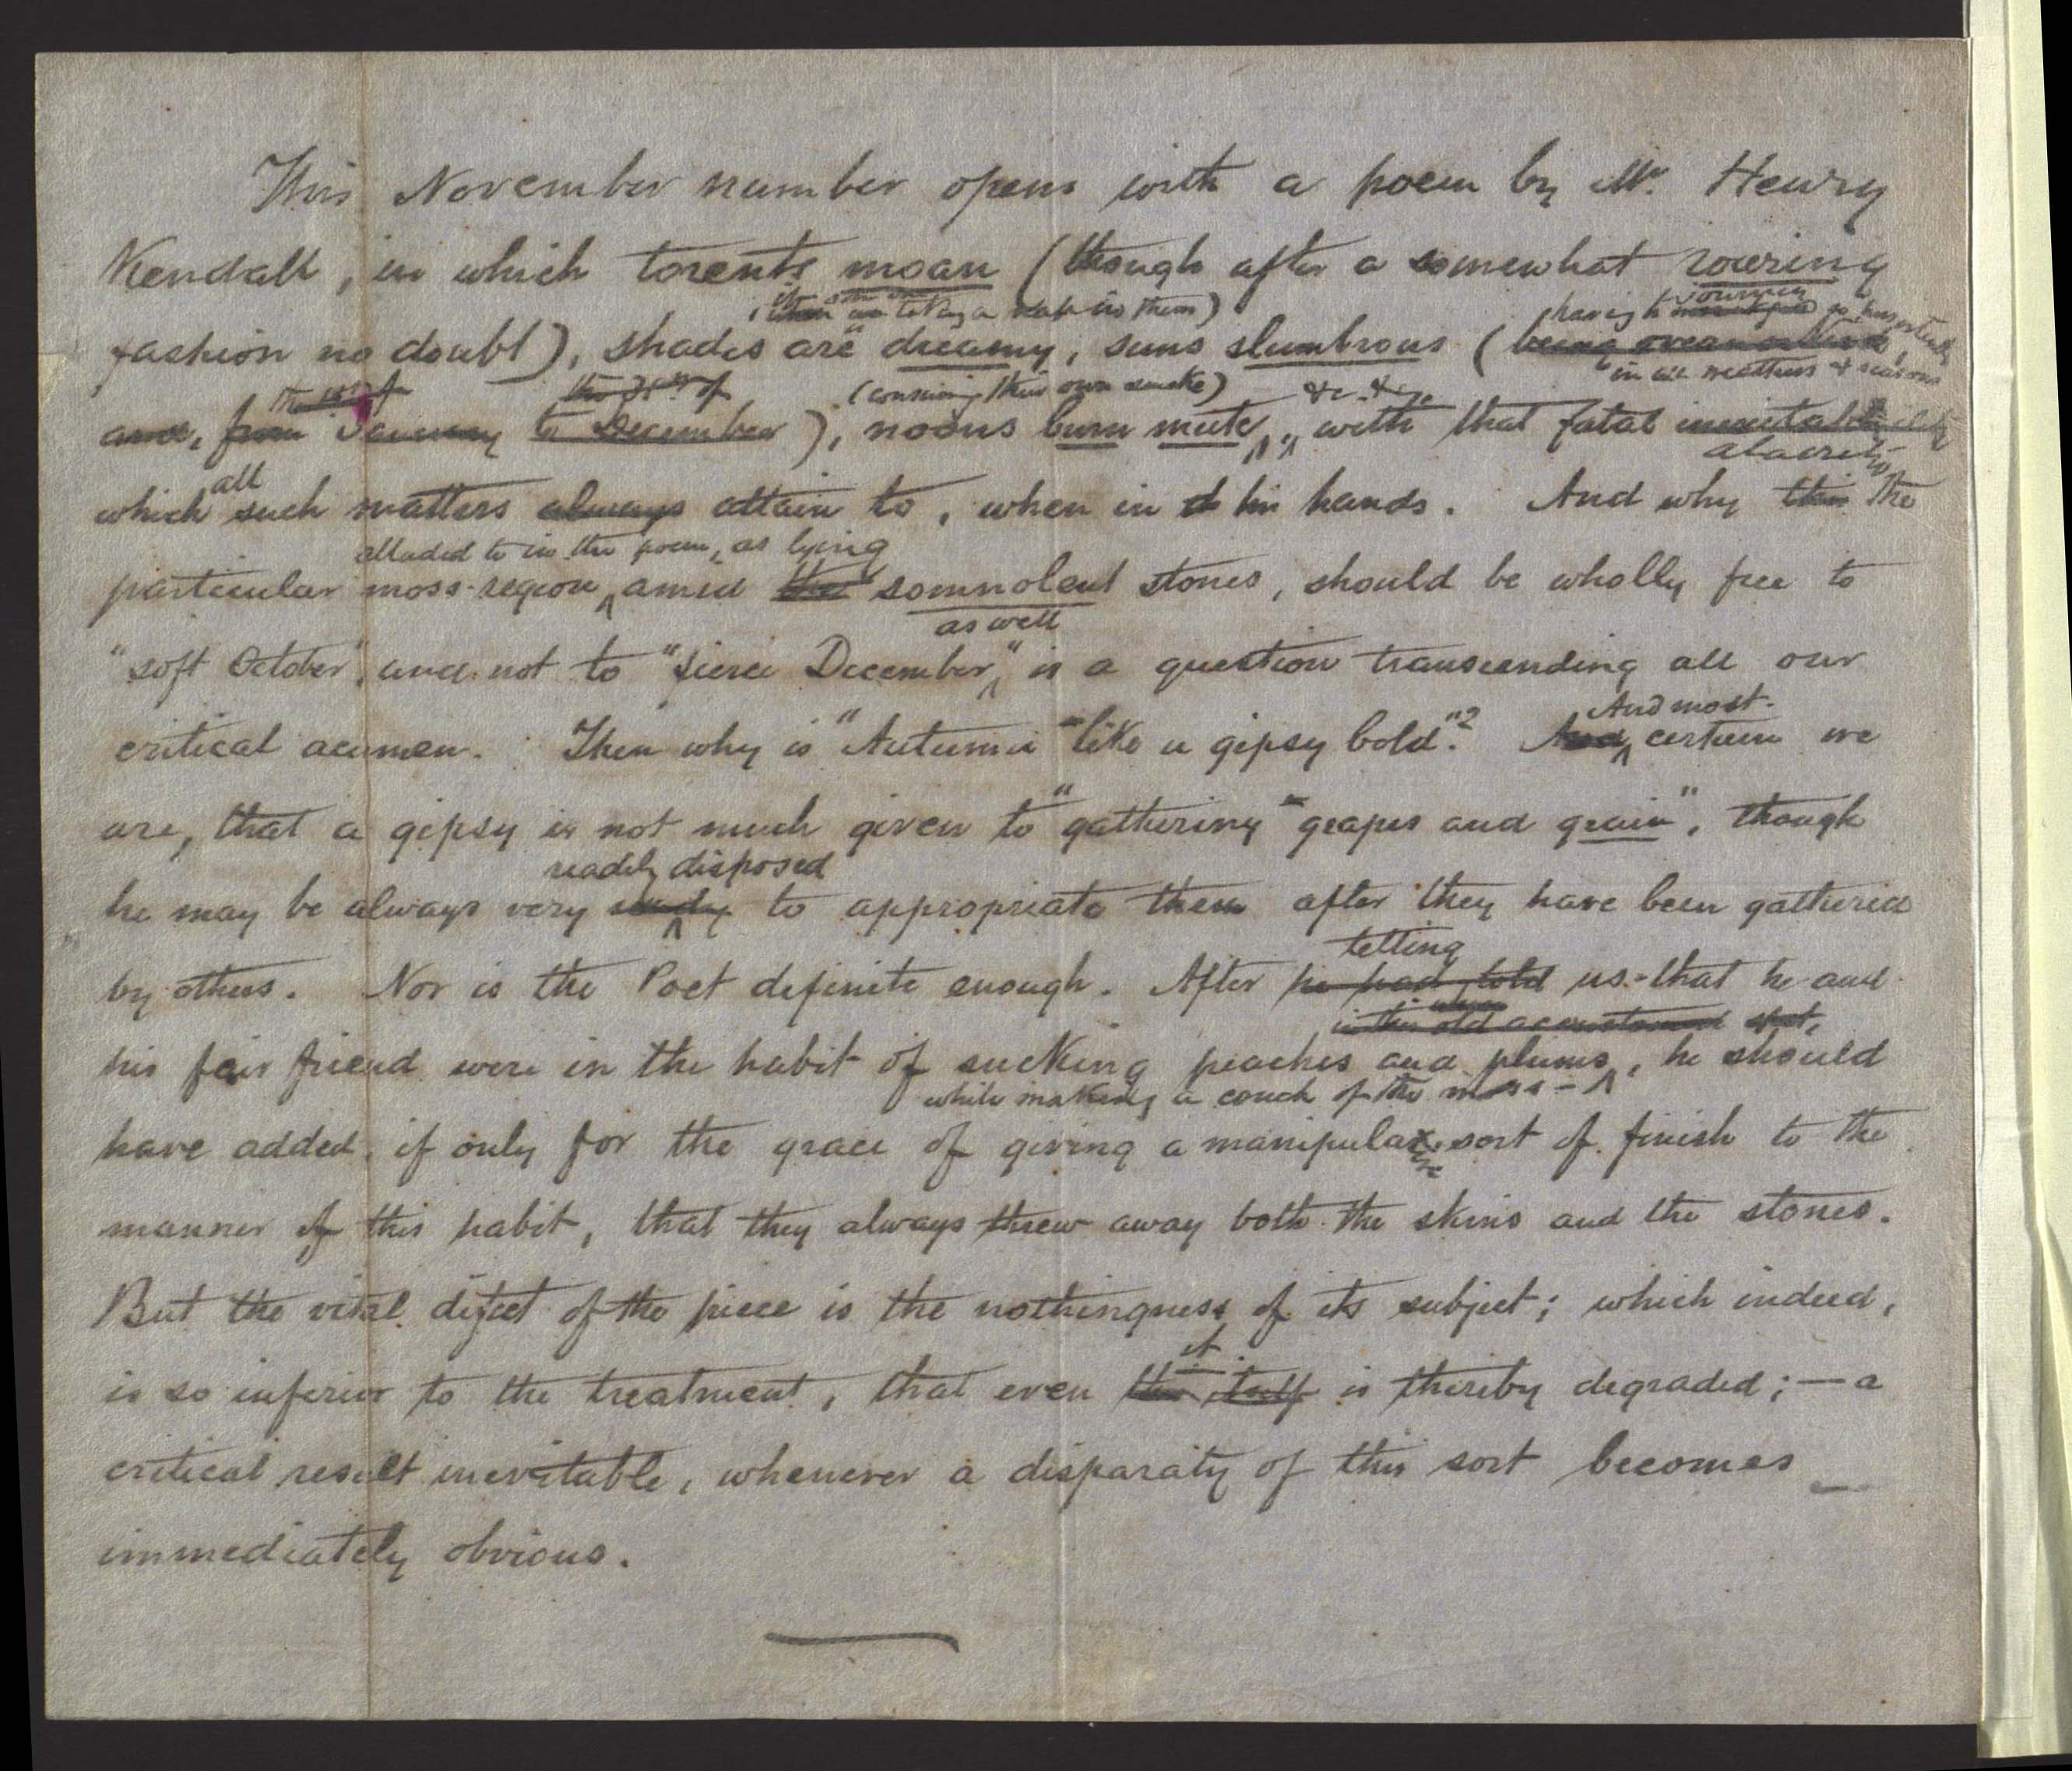 This November number opens with a poem by Mr. Henry
Kendall, in which torents moan (though after a somewhat roaring
(when taking a nap in them) having to journey so
fashion no doubt), shades are dreamy, suns slumbrous (being
in all weathers & seasons
the of the 31st of (consuming their own smoke) &c. &c.
and, from January to December), noons burn mute, with that fatal
alacrity
all
which such matters always attain to, when in his hands. And why this the
alluded to in the poem, as lying
particular moss-region amid the somnolent stones, should be wholly free to
as well
"soft October", and not to "fierce December," is a question transcending all our
And most
critical acumen. Then why is "Autumn like a gipsy bold"? And certain we
are, that a gipsy is not much given to "gathering grapes and grain", though
readily disposed
he may be always very ready to appropriate them after they have been gathered
telling
by others. Nor is the Poet definite enough. After he had told us that he and
in this old accustomed spot,
his fair friend were in the habit of sucking peaches and plums, he should
while making a couch of the moss
have added, if only for the grace of giving a manipular sort of finish to the
manner of this habit, that they always threw away both the skins and the stones.
But the vital defect of the piece is the nothingness of its subject; which indeed,
it
is so inferior to the treatment, that even the itself is thereby degraded; — a
critical result inevitable, whenever a disparaty of this sort becomes
immediately obvious.